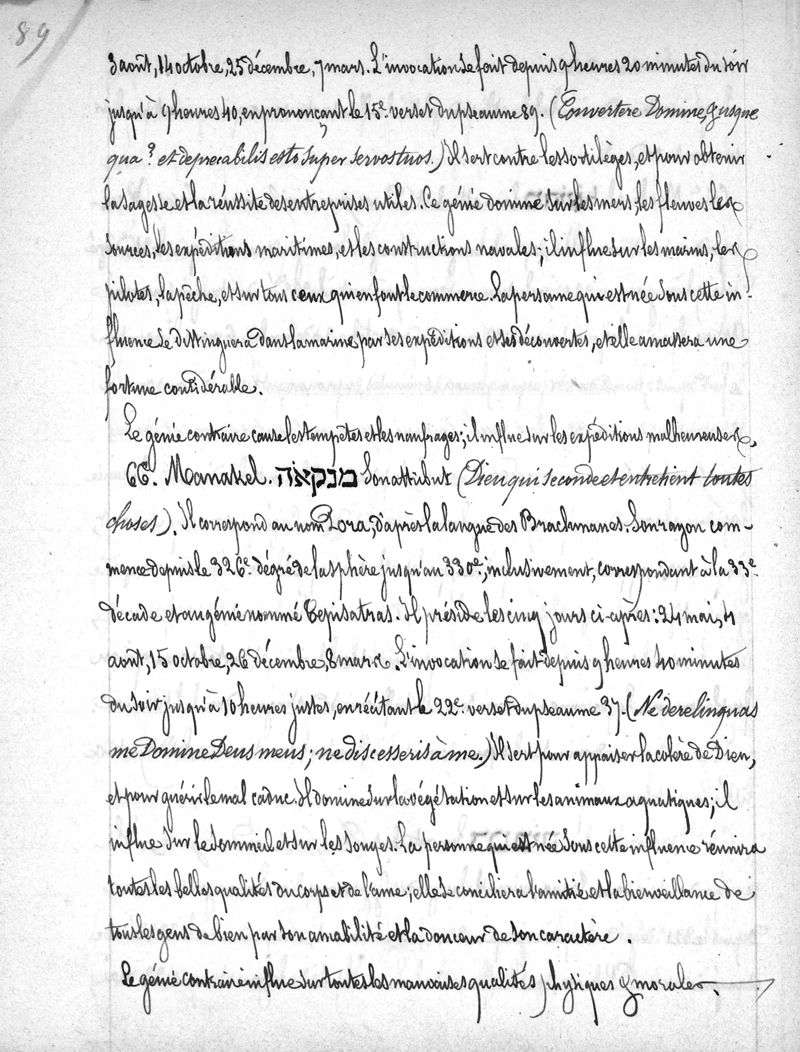 89
3 août, 14 octobre, 25 décembre, 7 mars. L'invocation se fait depuis 9 heures 20 minutes du soir
jusqu'à 9 heures 40, en prononçant le 15e. verset du pseaume 89. (Convertere Domine, & usque
qua? et deprecabilis esto super servos tuos.) Il sert contre les sortilèges, et pour obtenir
la sagesse et la réussite des entreprises utiles. Ce génie domine sur les mers, les fleuves les
sources, les expéditions maritimes, et les constructions navales; il influe sur les marins, les
pilotes, la pêche, et sur tous ceux qui en font le commerce. La personne qui est née sous cette in-
fluence se distinguera dans la marine par ses expéditions et ses découvertes, et elle amassera une
fortune considérable.
Le génie contraire cause les tempêtes et les naufrages; il influe sur les expéditions malheureuses.
66. Manakel. מנקאה Son attribut (Dieu qui seconde et entretient toutes
choses). Il correspond au nom Pora, d'après la langue des Brachmanes. Son rayon com-
mence depuis le 326e. dégré de la sphère jusqu'au 330e., inclusivement, correspondant à la 33e.
décade et au génie nommé Tepisatras. Il préside les cinq jours ci-après: 24 mai, 4
août, 15 octobre, 26 décembre, 8 mars. L'invocation se fait depuis 9 heures 40 minutes
du soir jusqu'à 10 heures justes, en récitant le 22e. verset du pseaume 37. (Ne derelinquas
me Domine Deus meus; ne discesseris à me.) Il sert pour appaiser la colère de Dieu,
et pour guérir le mal caduc. Il domine sur la végétation et sur les animaux aquatiques; il
influe sur le sommeil et sur les songes. La personne qui est née sous cette influence réunira
toutes les belles qualités du corps et de l'ame; elle se conciliera l'amitié et la bienveillance de
tous les gens de bien par son amabilité et la douceur de son caractère.
Le génie contraire influe sur toutes les mauvaises qualités physiques & morales.